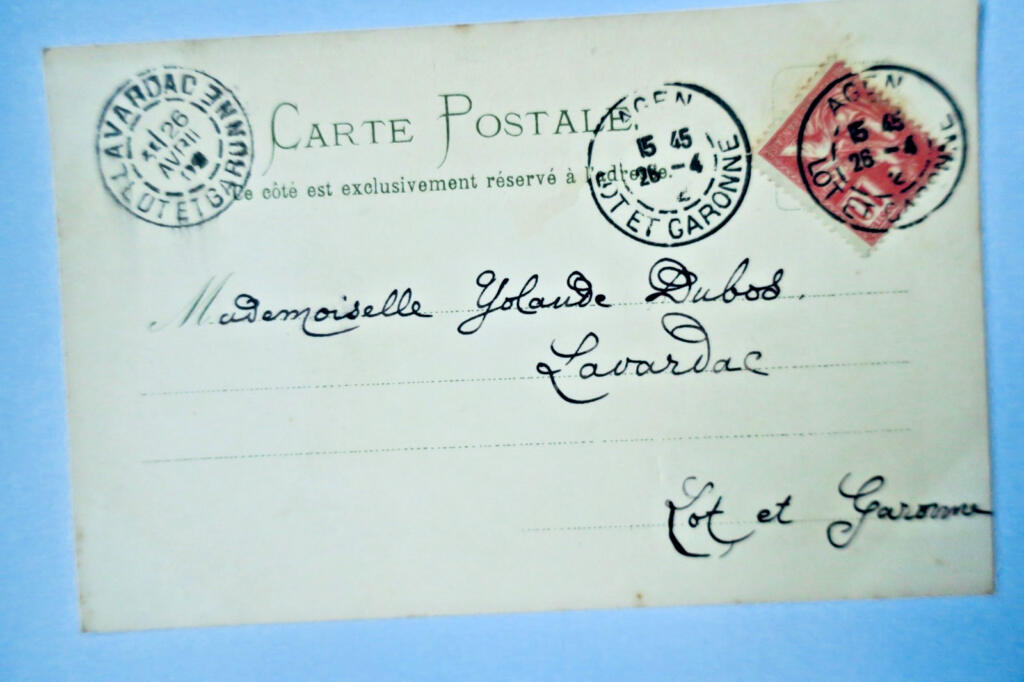 LAVARDAC
26
AVRIL
LOT ET GARONNE
CARTE POSTALE
Ce côté est exclusivement réservé à l'adresse.
AGEN
15 45
26 -4
LOT ET GARONNE
AGEN
15 45
26 -4
LOT ET GARONNE
10
Mademoiselle Yolande Dubos.
Lavardac
Lot et Garonne